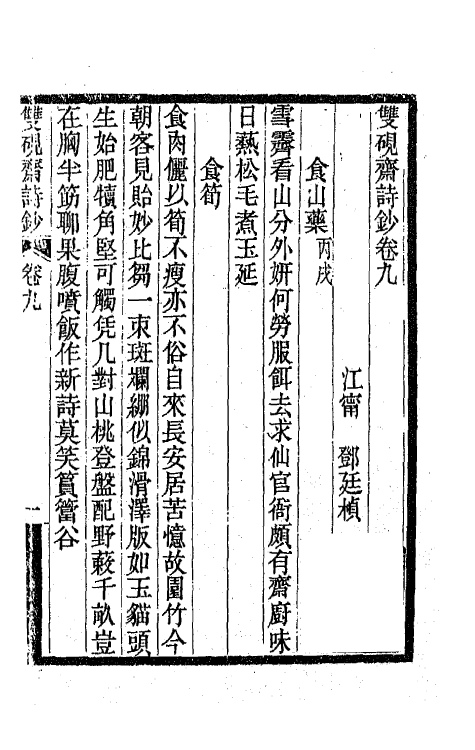 雙硯齋詩鈔卷九
江甯　鄧廷楨
食山藥丙戌
雪霽看山分外妍何勞服餌去求仙官衙頗有齋廚味
日熱松毛煮玉延
食筍
食肉儷以筍不瘦亦不俗自來長安居苦憶故園竹今
朝客見貽妙比芻一束斑斕綳似錦滑澤版如玉貓頭
生始肥犢角堅可觸凭几對山桃登盤配野蔌千畝豈
在胸半筋聊果腹噴飯作新詩莫笑篔簹谷
雙硯齋詩鈔　卷九　一